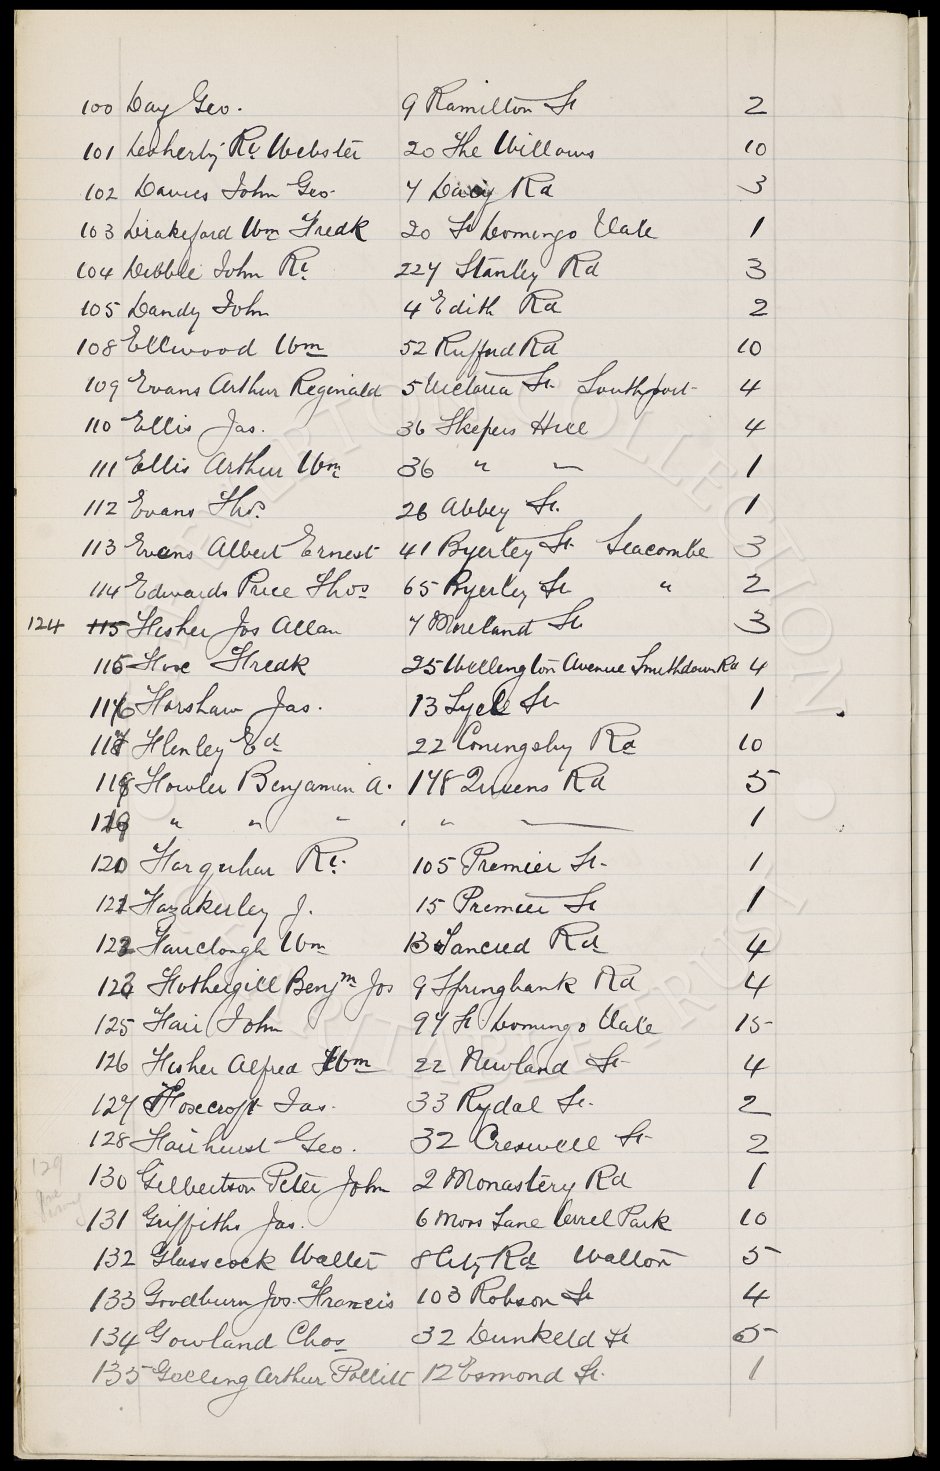 100 Day Geo. 9 Hamilton St 2
101 Rt. Webster 20 The Willows 10
102 Davies John Geo. 7 Rd 3
103 Drakeford Wm Fredk 20 St Domingo Vale 1
104 Dibble John Rt. 227 Stanley Rd 3
105 Dandy John 4 Edith Rd 2
108 Ellwood Wm 52 Rufford Rd 10
109 Evans Arthur Reginald 5 Victoria St. Southport 4
110 Ellis Jas. 36 Skepers Hill 4
111 Ellis Arthur Wm 36 " " 1
112 Evans Thos. 26 Abbey St. 1
113 Evans Albert Ernest 41 Byerley St. Seacombe 3
114 Edwards Price Thos 65 Byerley St " 2
124 115 Fisher Jos Allan 7 Moreland St 3
115 Fredk 25 Wellington Avenue Smithdown Rd 4
116 Forshaw Jas. 13 Lyell St 1
117 Fenley Ed 22 Coningsby Rd 10
118 Fowler Benjamin A. 178 Queens Rd 5
119 " " " " " 1
120 Farquhar Rt. 105 Premier St. 1
121 Fazakerley J. 15 Premier St 1
122 Fairclough Wm 13 Tancred Rd 4
123 Fothergill Benjm Jos 9 Springbank Rd 4
125 Fair John 97 St Domingo Vale 15
126 Fisher Alfred Wm 22 Newland St 4
127 Foxcroft Jas. 33 Rydal St. 2
128 Fairhurst Geo. 32 Creswell St 2
129
130 Gilbertson Peter John 2 Monastery Rd 1
131 Griffiths Jas. 6 Moss Lane Orrel Park 10
132 Glasscock Walter 8 City Rd Walton 5
133 Goodburn Jos. Francis 103 Robson St 4
134 Gowland Chas 32 Dunkeld St 5
135 Golling Arthur Pollitt 12 Esmond St. 1
EVERTON COLLECTION
CHARITABLE TRUST